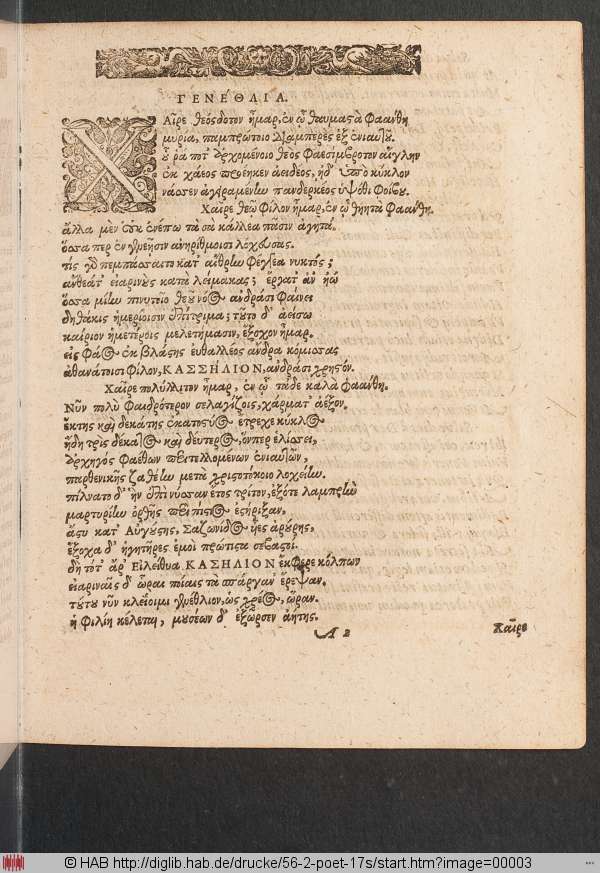 ΓΕΝΕΘΛΙΑ.
ΧΑῖρε θεόσδοτον ἦμαρ, ἐν ᾧ θαυμαστὰ φαάνθη
μυρία, παμπρώτοιο διαμπερὲς ἐξ ἐνιαυτοῦ.
οὗ ῥά ποτ' ἀρχομένοιο θεὸς φαεσίμβροτον αἴγλην
ἐκ χάεος προέηκεν ἀειδέος, ἠδ' ὑπὸ κύκλον
νάσσεν ἀγειραμένην πανδερκέος ὑψόθι φοίβου.
Χαῖρε θεῷ φίλον ἦμαρ, ἐν ᾧ θηητὰ φαάνθη.
ἀλλὰ μὲν οὐκ ἐνέπω τὰ σὰ κάλλεα πᾶσιν ἀγητά.
ὅσσα περ ἐν γενεῇσιν ἀνηρίθμοισι λόχευσας.
τίς γὰρ πεμπάσσαιτο κατ' αἰθέρα φέγγεα νυκτός;
ἄνθεά τ' εἰαρινοὺς κατὰ λείμακας; ἔργα τ' ἀν' ἠῶ
ὅσσα μίην πινυτοῖο θεοῦ νόος ἀνδράσι φαίνει
δηθάκις ἡμερίοισιν ἐπίτριμα; τοῦτο δ' ἀείσω
καίριον ἡμετέροις μελετήμασιν, ἔξοχον ἦμαρ.
εἰς φάος ἐκ βλάστης εὐθαλλέος ἄνδρα κομίσσας
ἀθανάτοισι φίλον, ΚΑΣΣΗΛΙΟΝ, ἀνδράσι χρηστόν.
Χαῖρε πολύλλιτον ἦμαρ, ἐν ᾧ τάδε καλὰ φαάνθη.
Νῦν πολὺ φαιδρότερον σελαγίζοις, χάρματ' ἀέξον.
ἕκτης καὶ δεκάτης ἑκατοστύος ἔτρεχε κύκλος
ἤδη τρὶς δέκατος καὶ δεύτερος, ὅνπερ ἑλίσσει,
ἀρχηγὸς φαέθων περιτελλομένων ἐνιαυτῶν,
παρθενικῆς ζαθέην μετὰ χριστοτόκοιο λοχείην.
πίλνατο δ' ἣν ἐπὶ νύσσαν ἔτος τρίτον, ἐξότε λαμπρὴν
μαρτυρίην ὀρθῆς περὶ πίστιος ἐστήριξαν,
ἄστυ κατ' Αὐγούστης, Σαξωνίδος ἧες ἀρούρης,
ἔξοχα δ' ἡγητῆρες ἐμοὶ πρώτιστα σεβαστοί.
δὴ τότ' ἄρ' Εἰλείθυα ΚΑΣΗΛΙΟΝ ἔκφερε κόλπων
εἰαριναῖς δ' ὧραι ποίαις τὰ σπάργαν' ἔρεψαν.
τούτου νῦν κλείοιμι γενέθλιον, ὡς χρέος, ὥραν.
ἡ φιλίη κέλεται, μουσέων δ' ἐξῶρσεν ἀήτης.
A 2 Χαῖρε
© HAB http://diglib.hab.de/drucke/56-2-poet-17s/start.htm?image=00003